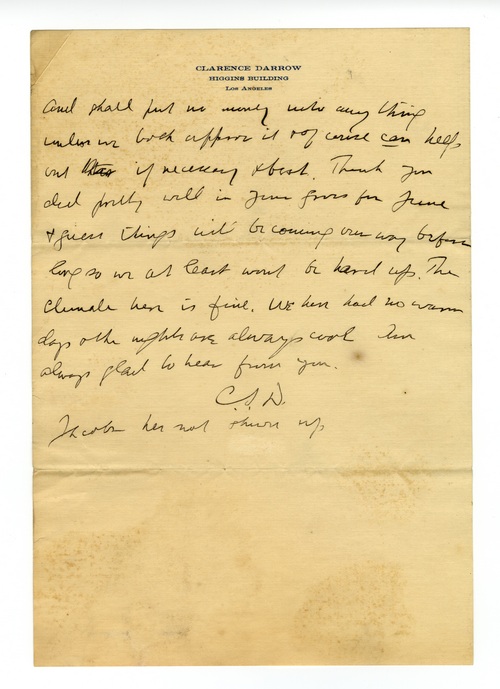 CLARENCE DARROW
HIGGINS BUILDING
LOS ANGELES
and shall put no money into any thing
unless we both approve it & of course can help
out if necessary & best. Thank you
did pretty well in your gross for June
& guess things will be coming our way before
long so we at least wont be hard up. The
climate here is fine. We have had no warm
days & the nights are always cool Am
always glad to hear from you.
C.S.D.
has not shown up